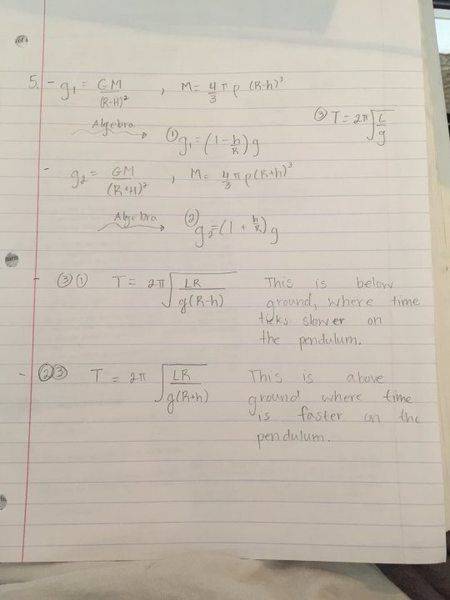 5. - g₁ = GM/(R-H)² , M = 4/3 π ρ (R-h)³
③ T = 2π√(L/g)
Algebra → ① g₁ = (1 - h/R) g
- g₂ = GM/(R+H)² , M = 4/3 π ρ (R+h)³
Algebra → ② g₂ = (1 + h/R) g
- ③① T = 2π √(LR/g(R-h)) This is below
ground, where time
ticks slower on
the pendulum.
- ②③ T = 2π √(LR/g(R+h)) This is above
ground where time
is faster on the
pendulum.